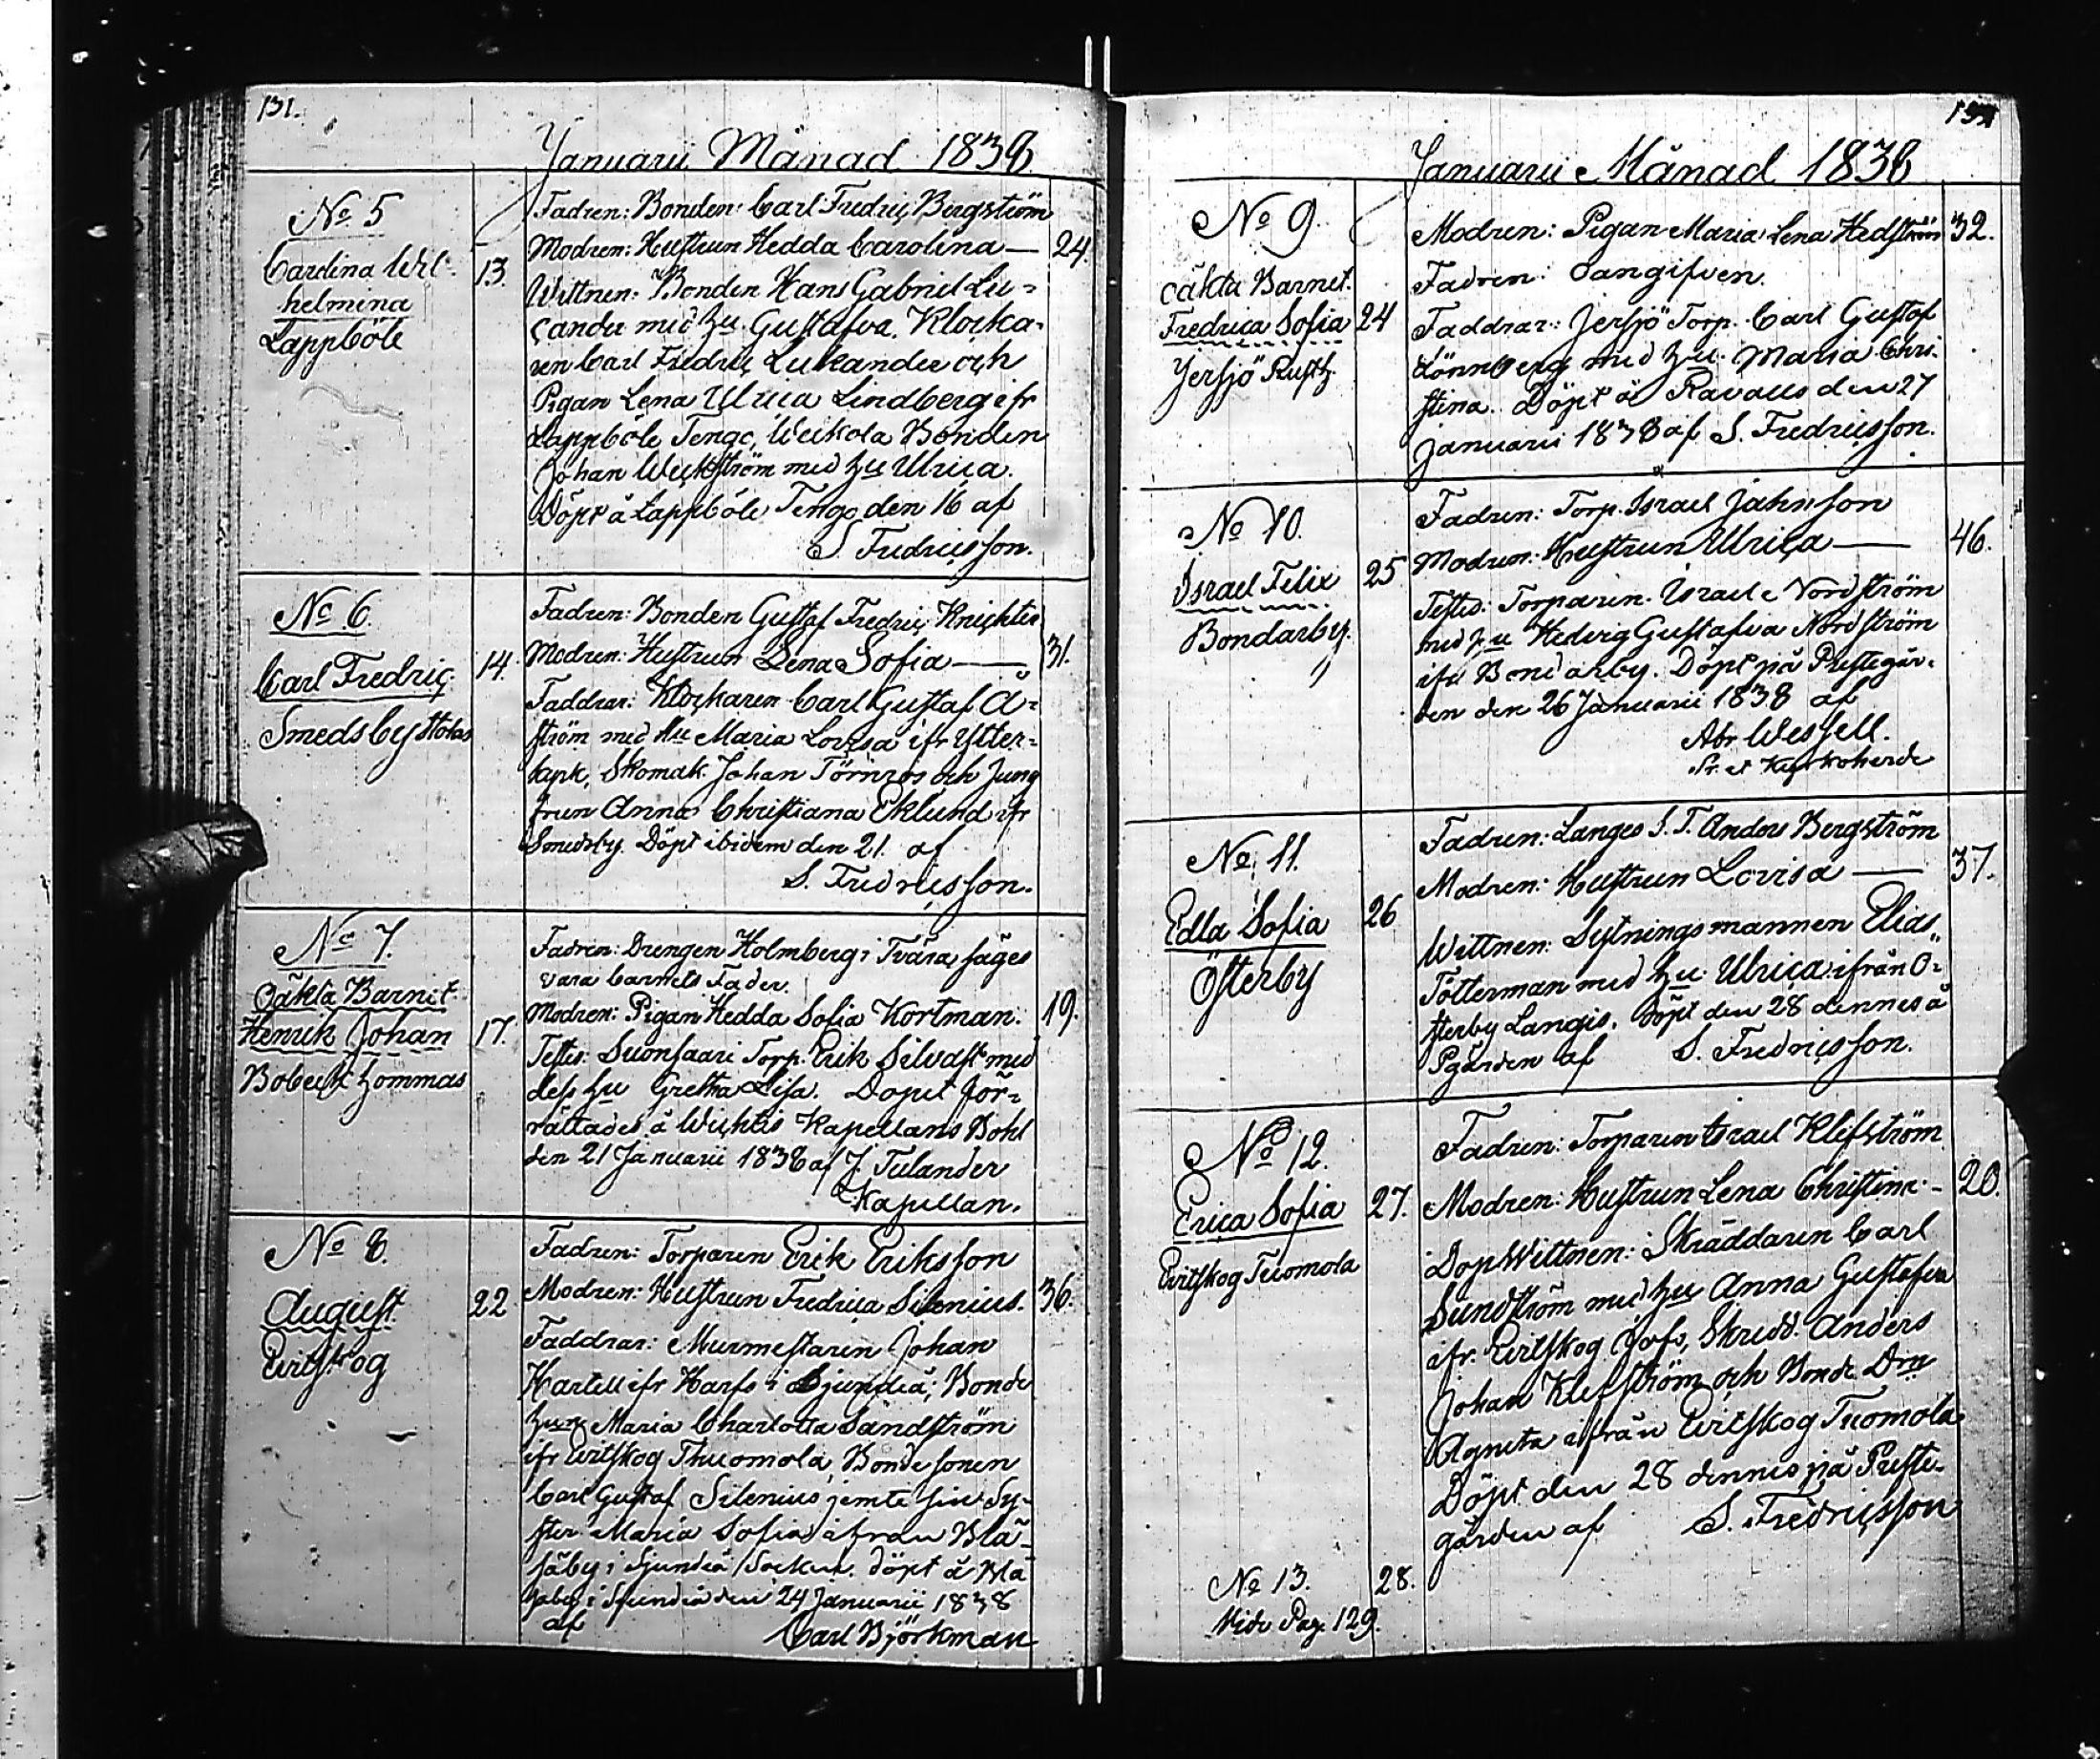 131.
Januarii Månad 1838
No 5
Carolina Wil-
helmina
Lappböle
13.
Fadren: Bonden Carl Fredriç Bergström
Modren: Hustrun Hedda Carolina — 24.
Wittnen: Bonden Hans Gabriel Lu-
çander med Hu Gustafva. Klocka-
ren Carl Fredriç Lukander och
Pigan Lena Ulrica Lindberg ifr
Lappböle Tengo, Weikola Bonden
Johan Weckström med Hu Ulrica.
Döpt å Lappböle Tengo den 16 af
S. Fredricsson.
No 6.
Carl Fredriç
Smedsby
14.
Fadren: Bonden Gustaf Fredriç Knichter
Modren: Hustrun Lena Sofia — 31.
Faddrar: Klockaren Carl Gustaf Å-
ström med Hu Maria Lovisa ifr Ytter-
kyrk, Skomak. Johan Törnros och Jung
frun Anna Christiana Eklund ifr
Smedsby. Döpt ibidem den 21. af
S. Fredricsson.
No 7.
Oäkta Barnet
Henrik Johan
Hommas
17.
Fadren: Drengen Holmberg i säges
vara barnets Fader.
Modren: Pigan Hedda Sofia Kortman. 19.
Testes: Suonsaari Torp. Erik Silvast med
dess Hu Gretha Lisa. Dopet för-
rättades å Wichtis Kapellans Bohl
den 21 Januarii 1838 af J. Tulander
Kapellan.
No 8.
August
Evitskog
22.
Fadren: Torparen Erik Eriksson
Modren: Hustrun Fredrica Silenius. 36.
Faddrar: Murmestaren Johan
Hartell ifr Harfs i Sjundeå; Bonde
Hun Maria Charlotta Sandström
ifr Evitskog Thuomola, Bonde sonen
Carl Gustaf Silenius jemte sin Sy-
ster Maria Sofia ifrån Blå-
jäby i Sjundeå Socken. döpt å Blå
jäby i Sjundeå den 24 Januarii 1838
af Carl Björkman
Januarii Månad 1838
No 9.
oäkta Barnet.
Fredrica Sofia
Jersjö Rusth.
24
Modren: Pigan Maria Lena Hedström 32.
Fadren: oangifven.
Faddrar: Jersjö Torp. Carl Gustaf
Lönnberg med Hu Maria Chri-
stina. Döpt å Ravalls den 27
januarii 1838 af S. Fredricsson.
No 10.
Israel Felix
Bondarby.
25
Fadren: Torp. Israel Jahnsson
Modren: Hustrun Ulrica — 46.
Testes: Torparen Israel Nordström
med Hu Hedvig Gustafva Nordström
ifr Bondarby. Döpt på Prestegår-
den den 26 Januarii 1838 af
Abr Wessell.
Pr. et Kyrkoherde
No 11.
Edla Sofia
Österby
26
Fadren: Langes S. T. Anders Bergström
Modren: Hustrun Lovisa — 37.
Wittnen: Sytningsmannen Elias
Tötterman med Hu Ulrica ifrån Ö-
sterby Langis. Döpt den 28 dennes å
Pgården af S. Fredricsson.
No 12.
Erica Sofia
Evitskog Tuomola
27.
Fadren: Torparen Israel Klefström
Modren: Hustrun Lena Christina - 20.
DopWittnen: Skräddaren Carl
Sundström med Hu Anna Gustafva
ifr. Evitskog Jofs, Skrädd. Anders
Johan Klefström och Bonde Drn
Agneta ifrån Evitskog Tuomola
Döpt den 28 dennes på Preste-
gården af S. Fredricsson
No 13. 28.
Vide Pag. 129.